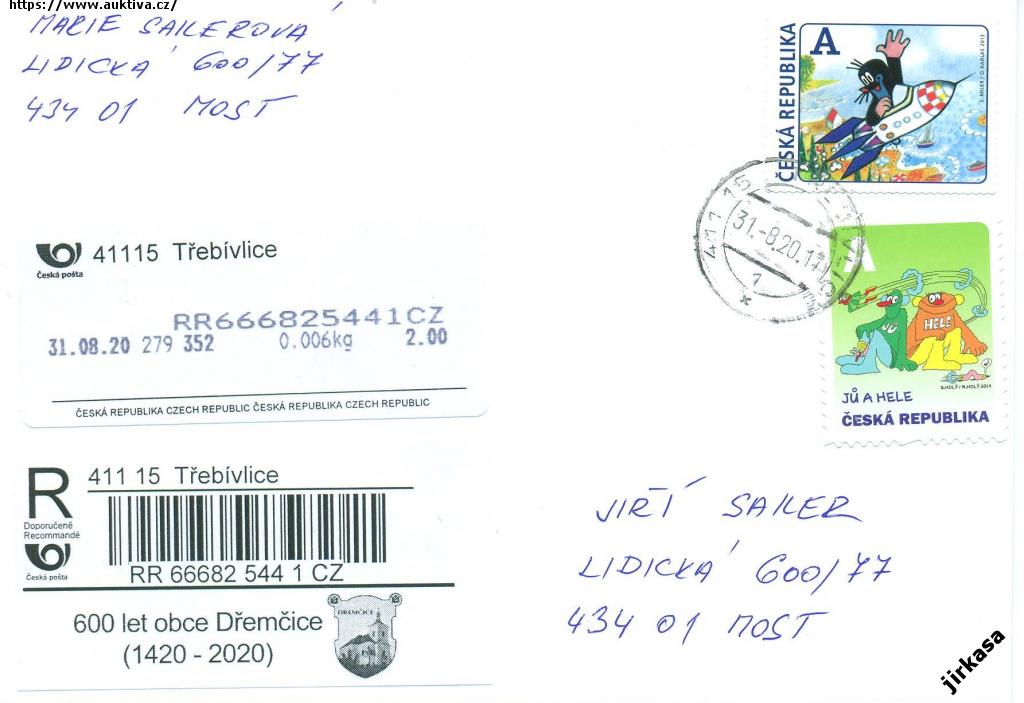 https://www.auktiva.cz/
MARIE SAILEROVÁ
LIDICKÁ 600/77
434 01 MOST
A
ČESKÁ REPUBLIKA
Z. MILER / O. KARLAS 2013
411 15
31.-8.20.17
1
*
A
JŮ
HELE
S.HOLÝ / M.HOLÝ 2014
JŮ A HELE
ČESKÁ REPUBLIKA
Česká pošta
41115 Třebívlice
RR666825441CZ
31.08.20 279 352 0.006kg 2.00
ČESKÁ REPUBLIKA CZECH REPUBLIC ČESKÁ REPUBLIKA CZECH REPUBLIC
R
Doporučeně
Recommandé
Česká pošta
411 15 Třebívlice
RR 66682 544 1 CZ
600 let obce Dřemčice
(1420 - 2020)
DŘEMČICE
JIŘÍ SAILER
LIDICKÁ 600/77
434 01 MOST
jirkasa